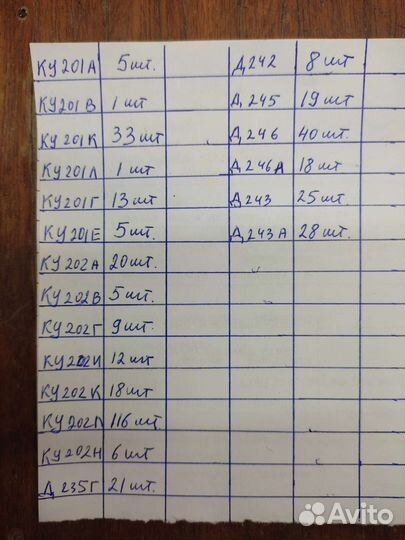 КУ201А 5шт. Д242 8 шт
КУ201В 1 шт Д245 19шт
КУ201К 33шт Д246 40шт.
КУ201Л 1 шт Д246А 18шт
КУ201Г 13шт Д243 25шт.
КУ201Е 5шт. Д243А 28шт.
КУ202А 20шт.
КУ202В 5шт.
КУ202Г 9шт.
КУ202И 12шт
КУ202К 18шт
КУ202Л 116шт.
КУ202Н 6шт
Д235Г 21шт.
Avito